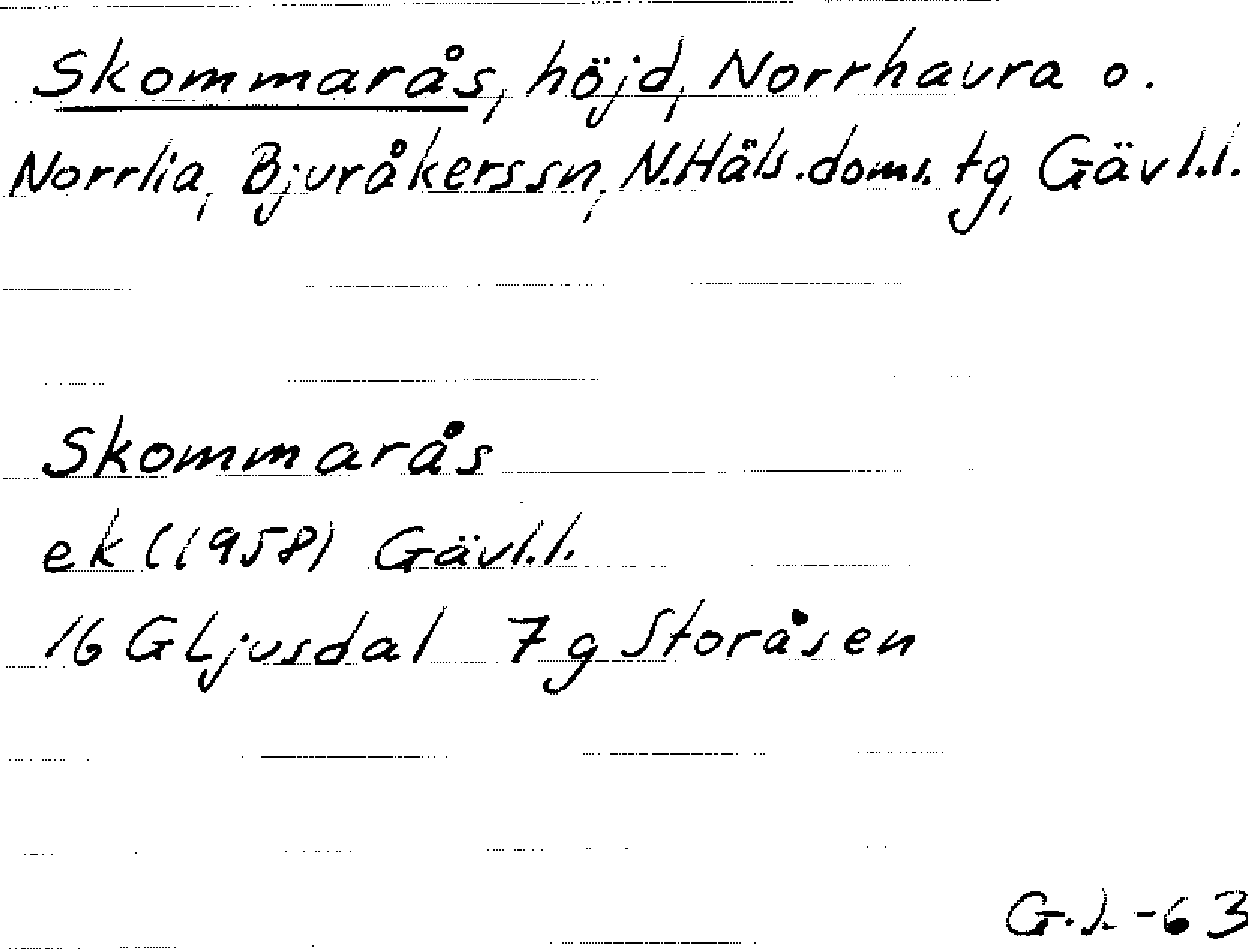 Skommarås, höjd, Norrhavra o.
Norrlia, Bjuråkerssn, N.Häls.doms.tg, Gävl.l.
Skommarås
ek (1958) Gävl.l.
16 G Ljusdal 7 g Storåsen
G. -63